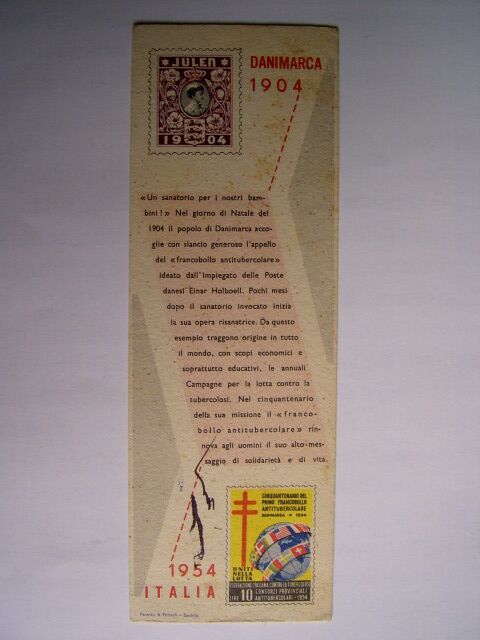 JULEN
1904
DANIMARCA
1904
«Un sanatorio per i nostri bam-
bini!» Nel giorno di Natale del
1904 il popolo di Danimarca acco-
glie con slancio generoso l'appello
del «francobollo antitubercolare»
ideato dall'Impiegato delle Poste
danesi Einar Holboell. Pochi mesi
dopo il sanatorio invocato inizia
la sua opera risanatrice. Da questo
esempio traggono origine in tutto
il mondo, con scopi economici e
soprattutto educativi, le annuali
Campagne per la lotta contro la
tubercolosi. Nel cinquantenario
della sua missione il «franco-
bollo antitubercolare» rin-
nova agli uomini il suo alto mes-
saggio di solidarietà e di vita.
CINQUANTENARIO DEL
PRIMO FRANCOBOLLO
ANTITUBERCOLARE
DANIMARCA • 1904
UNITI
NELLA
LOTTA
FEDERAZIONE ITALIANA CONTRO LA TUBERCOLOSI
LIRE 10 CONSORZI PROVINCIALI
ANTITUBERCOLARI - 1954
1954
ITALIA